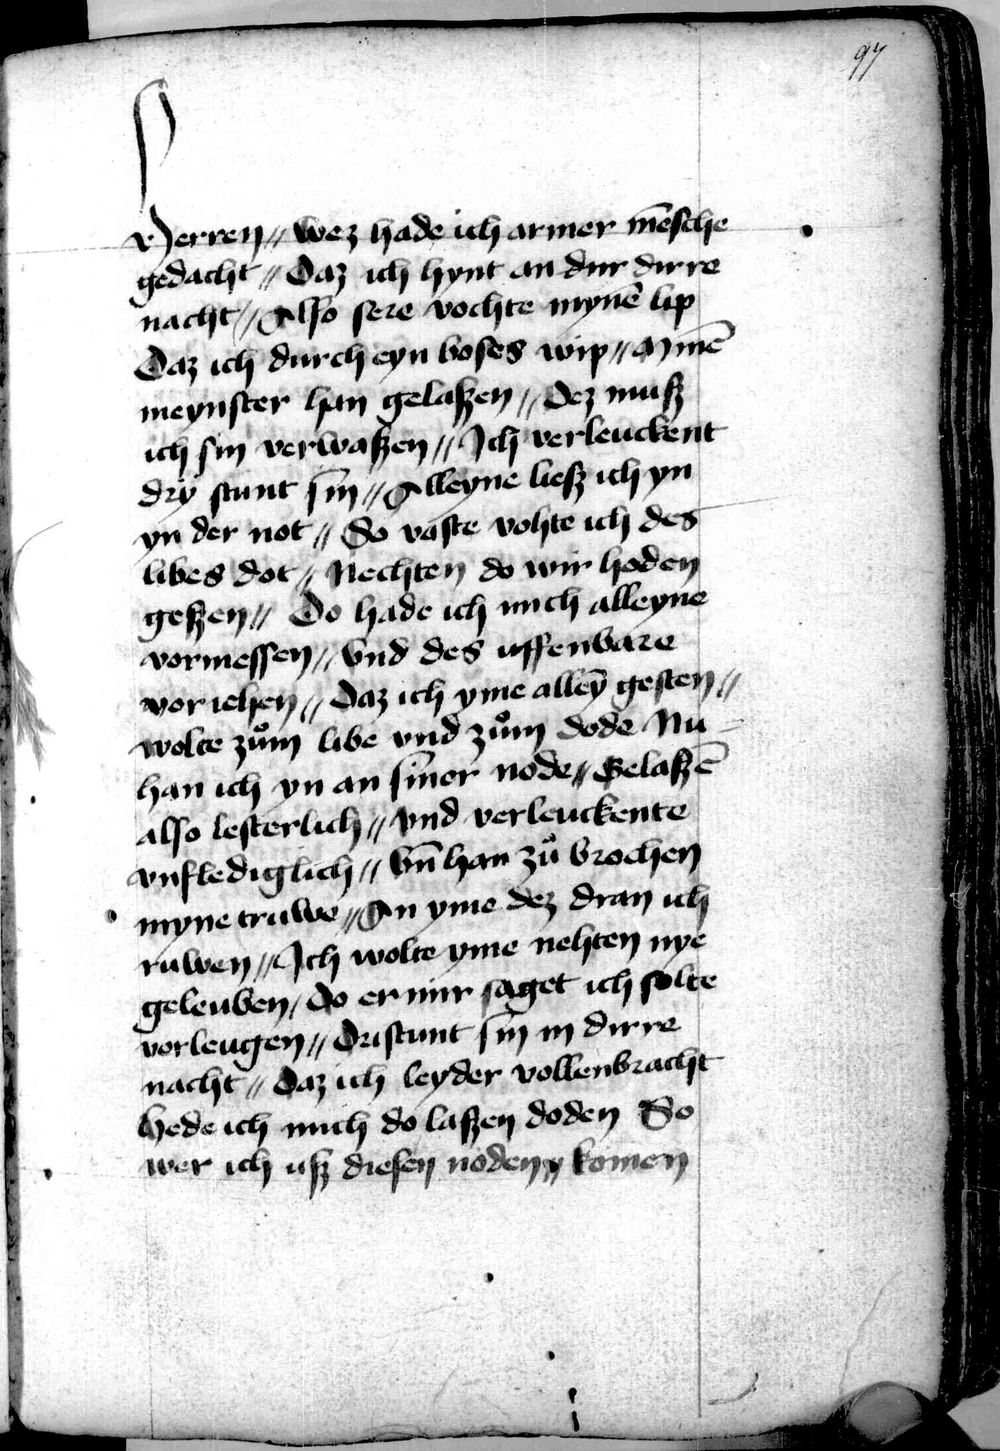 97
Herren // wez hade ich armer mēsche
gedacht // Daz ich hynt an dur dirre
nacht // Also sere vochte mynē lip
Daz ich durch eyn boses wip // Mynē
meynster han gelaßen // dez muß
ich sin verwaßen // Ich verleuckent
dry stunt sin // Alleyne ließ ich yn
yn der not // So vaste vohte ich des
libes dot // Nechten do wir hoden
geßen // Do hade ich mich alleyne
vormessen // vnd des uffenbare
vor iehen // Daz ich yme alleȳ gesten //
wolte zům libe vnd zům dode Nu
han ich yn an siner node // Gelaßē
also lesterlich // vnd verleuckente
vnflediglich // vn̄ han zů brochen
myne truwe // An yme dez dran ich
ruwen // Ich wolte yme nehten nye
geleuben / do er mir saget ich solte
vorleugen // Dristunt sin in dirre
nacht // Daz ich leyder vollenbracht
hede ich mich do laßen doden So
wer ich uß diesen noden // komen